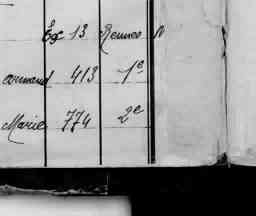 Ex 13 Rennes N
ormand 413 1e
Marie 774 2e